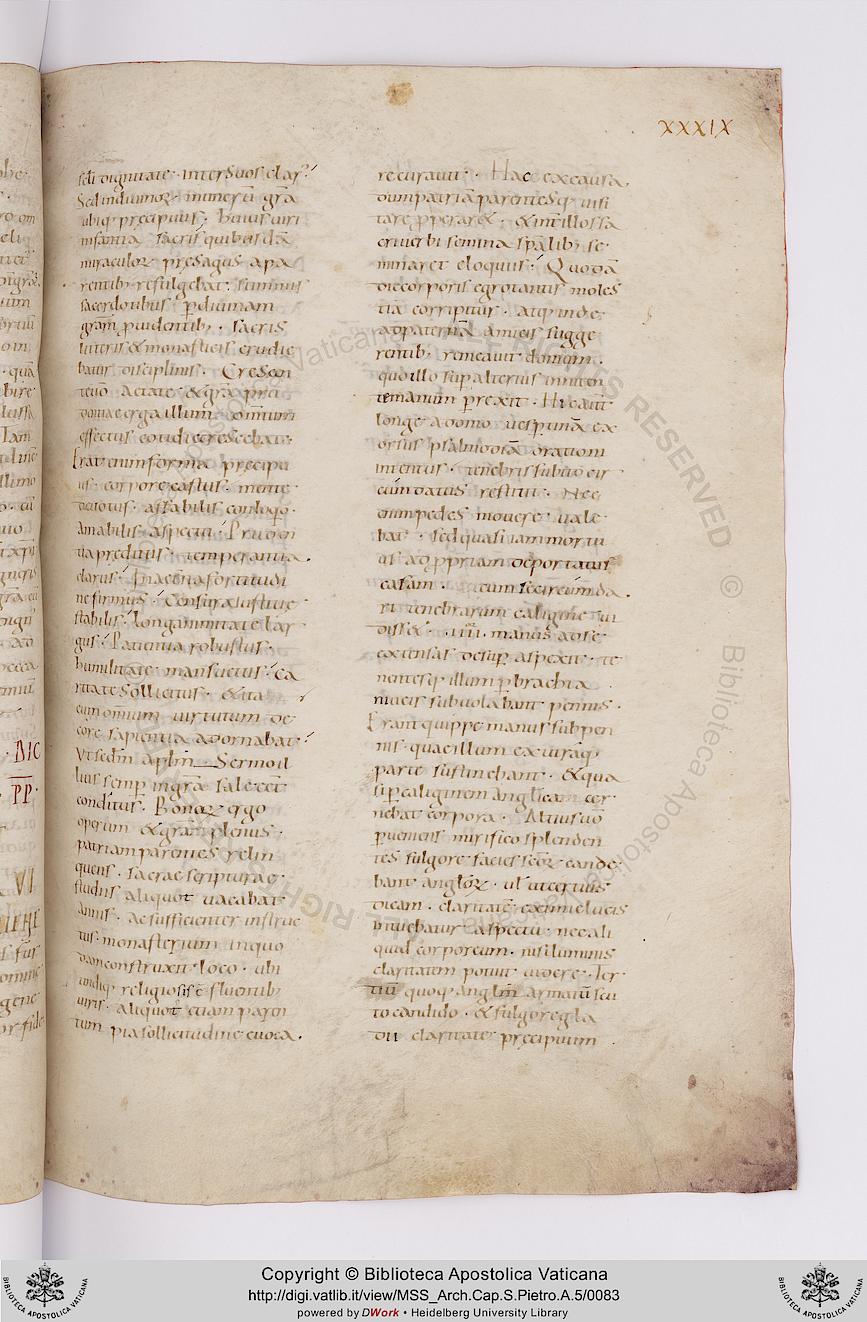 XXXIX
scli dignitate· inter suos clarˀ
Sed induimoꝝ· munerū gr̄a
ubiq; precipuus· huius uiri
infantia sacris quibusdā
miraculoꝝ presagus apa
rentib; refulgebat· summus
sacerdotibus p diuinam
gram puidentib;· sacris
litteris & monasticis erudie
batur disciplinis· Crescen
teuō aetate & gr̄a pre
doniae erga illum omnium
effectus cotidie crescebat·
Erat enim forma precipu
us· corpore castus· mente
deuotus· affabilis conloqō·
Amabilis aspectu· Pruden
tia preditus· temperantia·
clarus· Interna fortitudi
ne firmus· Censura iustitie
stabilis· longanimitate lar
gus· Patientia robustus·
humilitate mansuetus· Ca
ritate sollicitus· & ita
eum omnium uirtutum de
core sapientia adornabat·
Ut scdm aplm Sermo il
lius semp ingr̄a sale eēt
conditus· Bonoꝝ ergo
operum & gr̄am plenus·
patriam parentes relin
quens· sacrae scripturae
studiis aliquot uacabat
annis· ac sufficienter instruc
tus· monasterium in quo
dam construxit loco· ubi
undiq; religiosis ē fluentib;
uiris· aliquot etiam paren
tum pia sollicitudine euoca·
recurauit· Hac ex causa·
dum patriā parentesq; uisi
tare pperar&· & in illos sa
cri uerbi semina spalib; se
minaret eloquiis· Quodā
die corporis egrotantis moles
tia corripitur· atq; inde·
ad paternā amicis sugge
rentib; remeauit domum·
quo illo sup alterius inniten
te manum prexit· Hic aut
longe a domo uespertinā ex
orsus psalmodiā orationi
intentus· tenebris subito cir
cūm datus restitit· Nec
enim pedes mouere uale
bat· sed quasi iam mortu
us ad ppriam deportatus
casam· cum se circumda
ri tenebrarum caligine ui
diss&· iiii· manus ad se
extensas desup aspexit· te
nentesq; illum p brachia
niueis subuolabant pennis·
Erant quippe manus sub pen
nis· quae illum ex utraq;
parte sustinebant· & qua
si p caliginem anglicam cer
nebat corpora· Altius uō
pueniens mirifico splenden
tes fulgore facies scōꝝ cande
bant angloꝝ· ul ut certius
dicam· claritatē eximie lucis
intuebatur aspectu· nec ali
quid corporeum· nisi luminis
claritatim potuit uidere· Ter
tiū quoq; anglm̄ armatū scu
to candido· & fulgore gla
dii claritate precipuum
· DIC
PP·
VI
Copyright © Biblioteca Apostolica Vaticana
http://digi.vatlib.it/view/MSS_Arch.Cap.S.Pietro.A.5/0083
powered by DWork • Heidelberg University Library